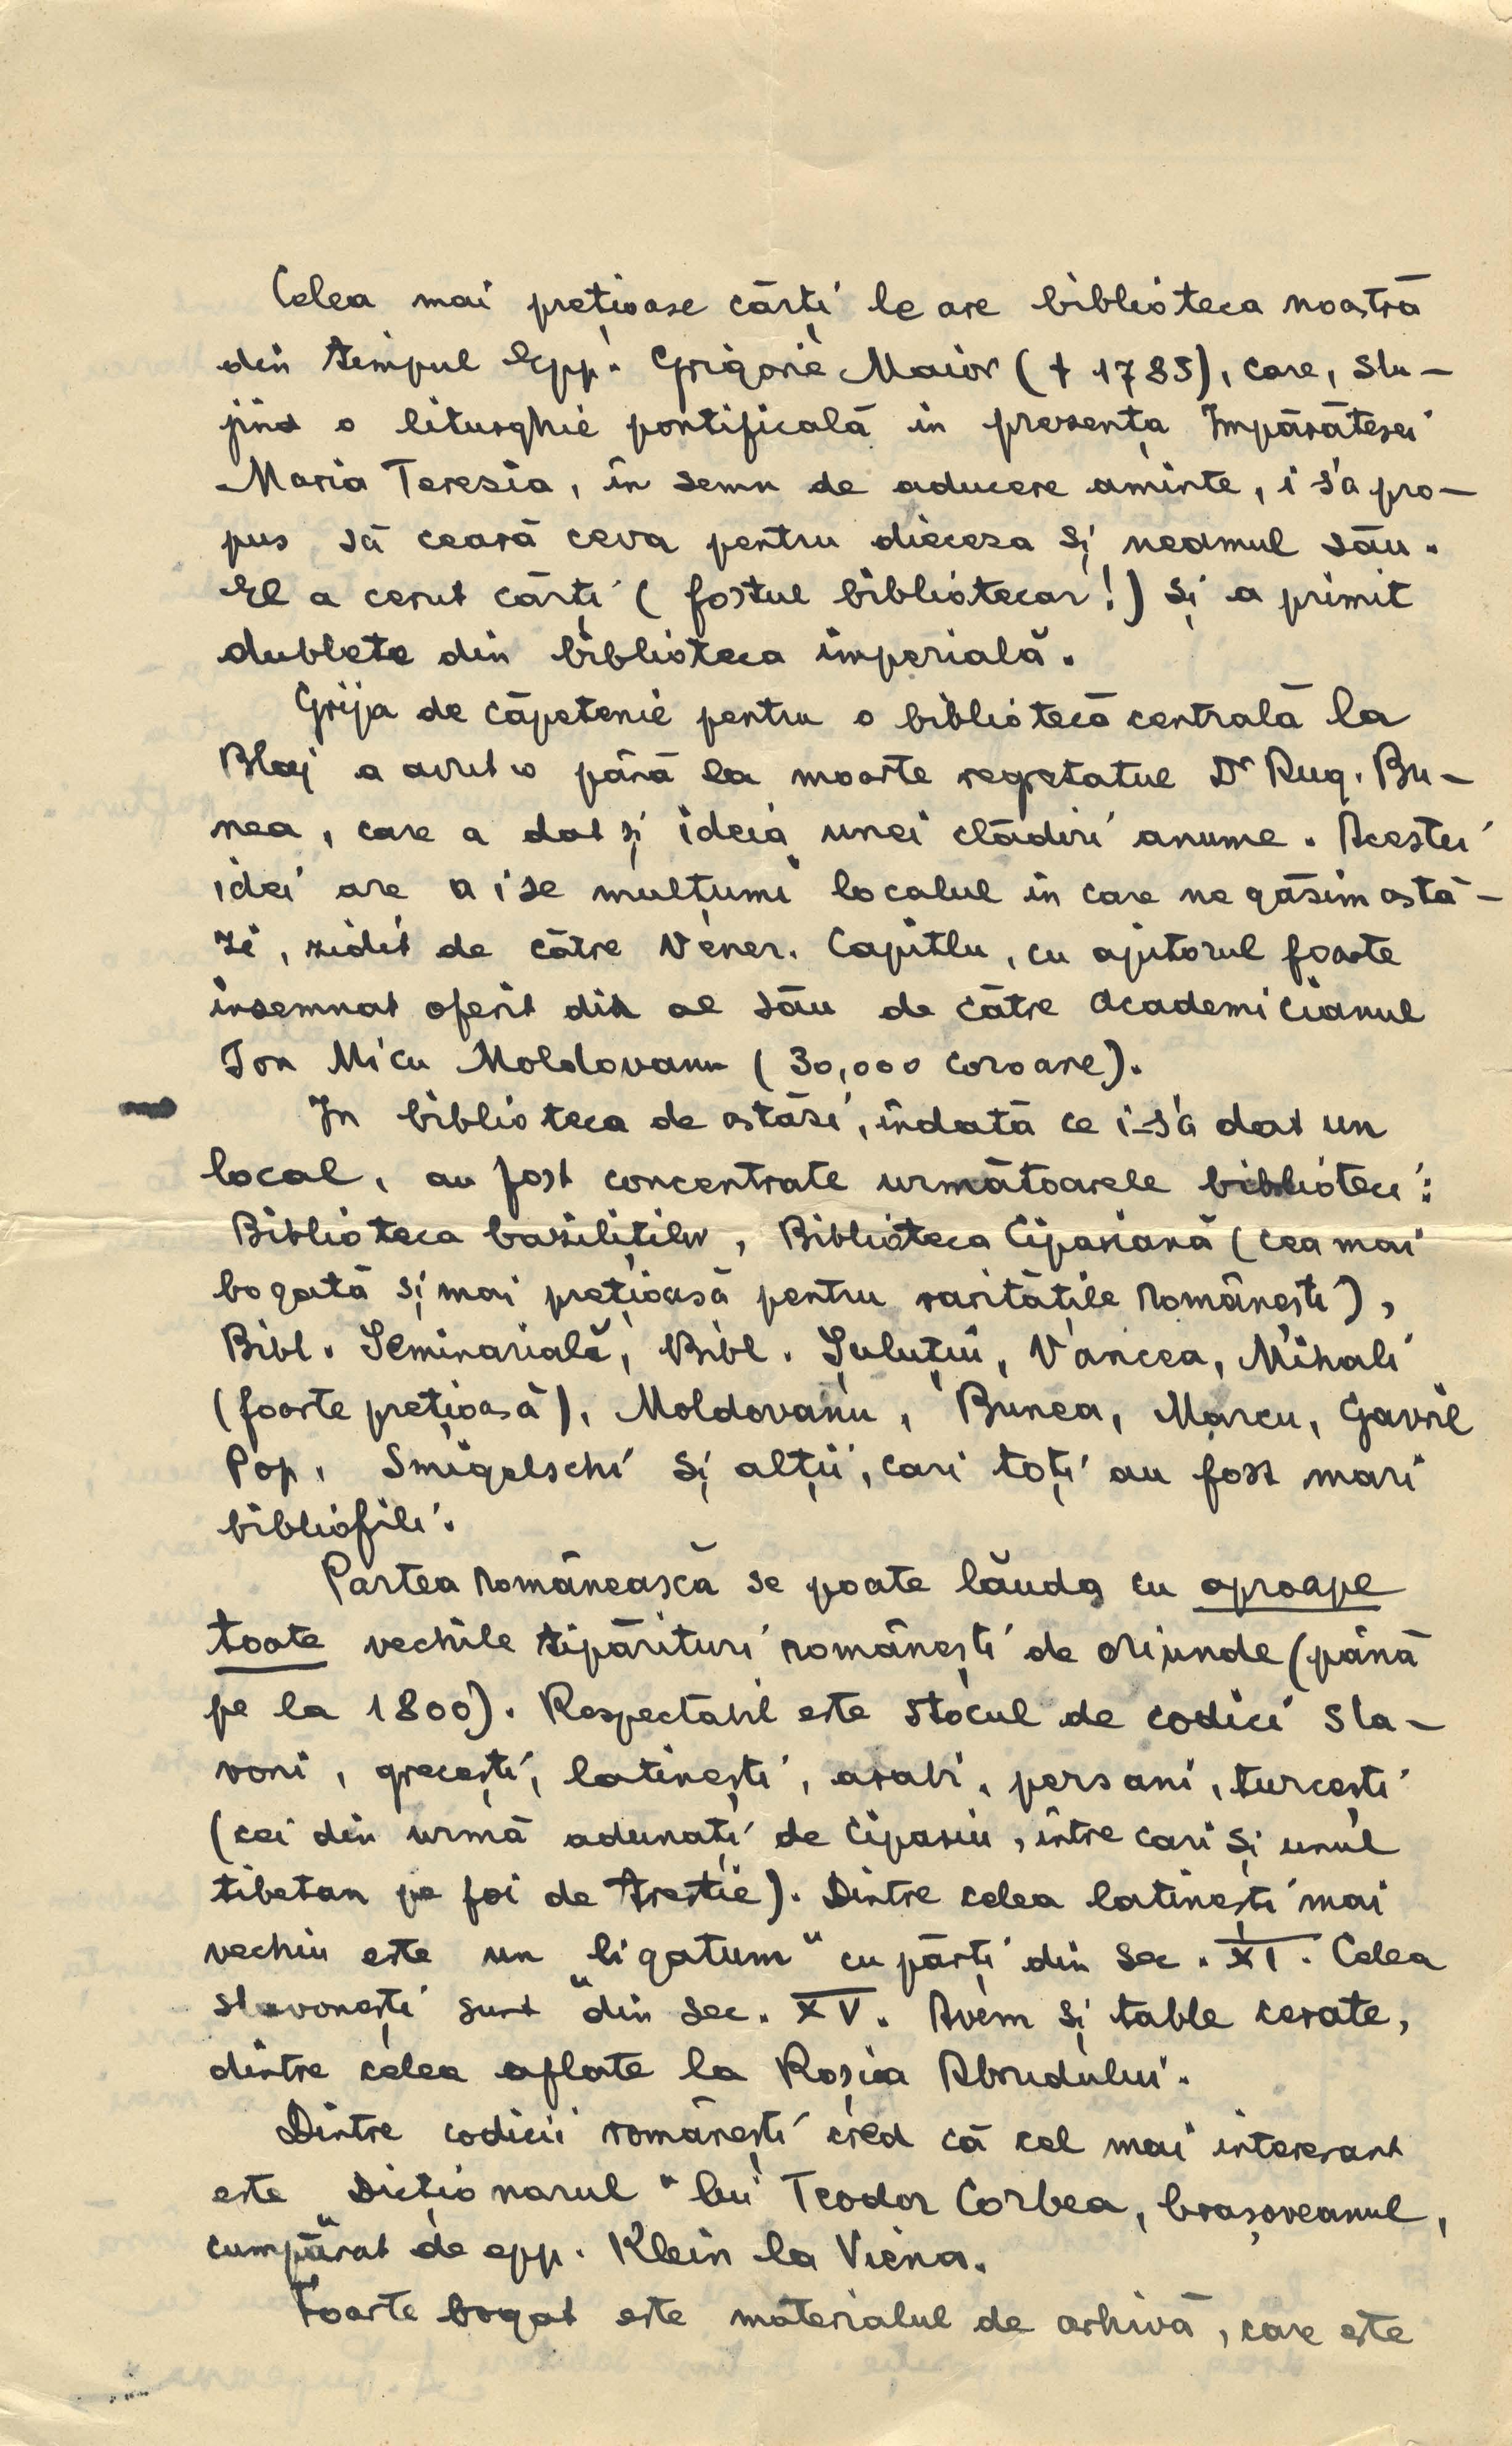 Celea mai prețioase cărți le are biblioteca noastră
din timpul Epp. Grigorie Maior († 1785), care, slu-
jind o liturghie pontificală în prezența Împărătesei
Maria Teresia, în semn de aducere aminte, i s'a pro-
pus să ceară ceva pentru dieceza și neamul său.
El a cerut cărți (fostul bibliotecar!) și a primit
dublete din biblioteca imperială.
Grija de căpetenie pentru o bibliotecă centrală la
Blaj a avut o până la moarte regretatul Dr Aug. Bu-
nea, care a dat și ideia unei clădiri anume. Acestei
idei are a i se mulțumi localul în care ne găsim astă-
zi, zidit de către Vener. Capitlu, cu ajutorul foarte
însemnat oferit din al său de către academicianul
Ion Micu Moldovanu (30,000 coroane).
In biblioteca de astăzi, îndată ce i-s'a dat un
local, au fost concentrate următoarele biblioteci:
Biblioteca baziliților, Biblioteca Cipariană (cea mai
bogată și mai prețioasă pentru raritățile românești),
Bibl. Seminarială, Bibl. Șuluțiu, Vancea, Mihali
(foarte prețioasă), Moldovanu, Bunea, Marcu, Gavril
Pop, Smigelschi și alții, cari toți au fost mari
bibliofili.
Partea românească se poate lăuda cu aproape
toate vechile tipărituri românești de oriunde (până
pe la 1800). Respectabil este stocul de codici sla-
voni, grecești, latinești, arabi, persani, turcești
(cei din urmă adunați de Cipariu, între cari și unul
tibetan pe foi de trestie). Dintre celea latinești mai
vechiu este un „ligatum" cu părți din sec. XI. Celea
slavonești sunt din sec. XV. Avem și table cerate,
dintre celea aflate la Roșia Abrudului.
Dintre codicii românești cred că cel mai interesant
este „Dicționarul" lui Teodor Corbea, brașoveanul,
cumpărat de epp. Klein la Viena.
Foarte bogat este materialul de arhivă, care este